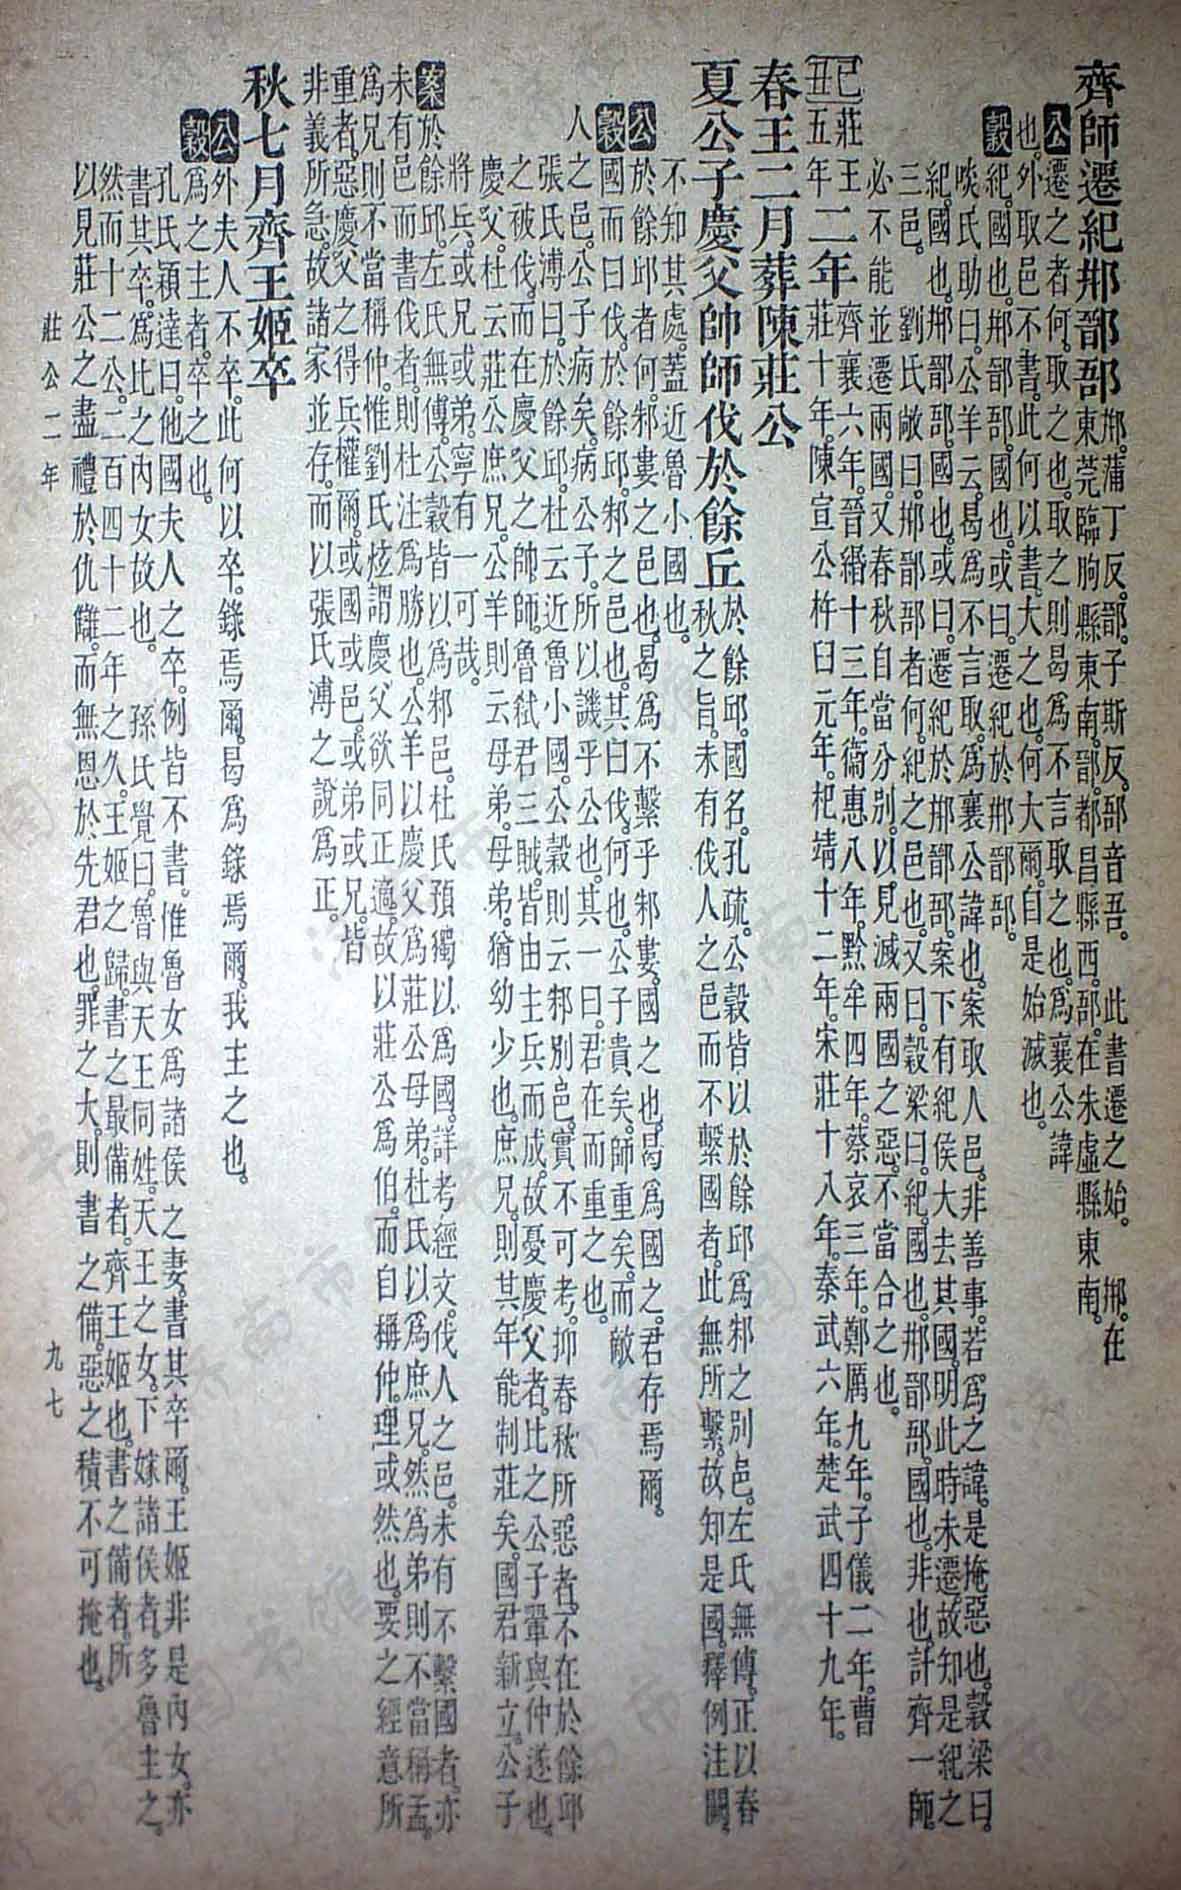 齊師遷紀郱鄑郚
郱。蒲丁反。鄑。子斯反。郚音吾。 此書遷之始。 郱。在
東莞臨朐縣東南。鄑。都昌縣西。郚。在朱虛縣東南。
公 遷之者何。取之也。取之則曷爲不言取之也。爲襄公諱
也。外取邑不書。此何以書。大之也。何大爾。自是始滅也。
穀 紀。國也。郱鄑郚。國也。或曰。遷紀於郱鄑郚。
啖氏助曰。公羊云。曷爲不言取。爲襄公諱也。案取人邑。非善事。若爲之諱。是掩惡也。穀梁曰。
紀。國也。郱鄑郚。國也。或曰。遷紀於郱鄑郚。案下有紀侯大去其國。明此時未遷。故知是紀之
三邑。 劉氏敞曰。郱鄑郚者何。紀之邑也。又曰。穀梁曰。紀。國也。郱鄑郚。國也。非也。計齊一師。
必不能並遷兩國。又春秋自當分別。以見滅兩國之惡。不當合之也。
己丑 莊王五年 二年
齊襄六年。晉緡十三年。衞惠八年。黔牟四年。蔡哀三年。鄭厲九年。子儀二年。曹
莊十年。陳宣公杵臼元年。杞靖十二年。宋莊十八年。秦武六年。楚武四十九年。
春王二月葬陳莊公
夏公子慶父帥師伐於餘丘
於餘邱。國名。孔疏。公穀皆以於餘邱爲邾之別邑。左氏無傳。正以春
秋之旨。未有伐人之邑而不繫國者。此無所繫。故知是國。釋例注闕。
不知其處。蓋近魯小國也。
公 於餘邱者何。邾婁之邑也。曷爲不繫乎邾婁。國之也。曷爲國之。君存焉爾。
穀 國而曰伐。於餘邱。邾之邑也。其曰伐。何也。公子貴矣。師重矣。而敵
人之邑。公子病矣。病公子。所以譏乎公也。其一曰。君在而重之也。
張氏溥曰。於餘邱。杜云近魯小國。公穀則云邾別邑。實不可考。抑春秋所惡者。不在於餘邱
之被伐。而在慶父之帥師。魯弒君三賊。皆由主兵而成。故憂慶父者。比之公子翬與仲遂也。
慶父。杜云莊公庶兄。公羊則云母弟。母弟。猶幼少也。庶兄。則其年能制莊矣。國君新立。公子
將兵。或兄或弟。寧有一可哉。
案 於餘邱。左氏無傳。公穀皆以爲邾邑。杜氏預獨以爲國。詳考經文。伐人之邑。未有不繫國者。亦
未有邑而書伐者。則杜注爲勝也。公羊以慶父爲莊公母弟。杜氏以爲庶兄。然爲弟則不當稱孟。
爲兄則不當稱仲。惟劉氏炫謂慶父欲同正適。故以莊公爲伯。而自稱仲。理或然也。要之經意所
重者。惡慶父之得兵權爾。或國或邑。或弟或兄。皆
非義所急。故諸家並存。而以張氏溥之說爲正。
秋七月齊王姬卒
公 外夫人不卒。此何以卒。錄焉爾。曷爲錄焉爾。我主之也。
穀 爲之主者。卒之也。
孔氏穎達曰。他國夫人之卒。例皆不書。惟魯女爲諸侯之妻。書其卒爾。王姬非是內女。亦
書其卒。爲比之內女故也。 孫氏覺曰。魯與天王同姓。天王之女。下嫁諸侯者。多魯主之。
然而十二公。二百四十二年之久。王姬之歸。書之最備者。齊王姬也。書之備者。所
以見莊公之盡禮於仇讎。而無恩於先君也。罪之大。則書之備。惡之積不可掩也。
莊公二年
九七